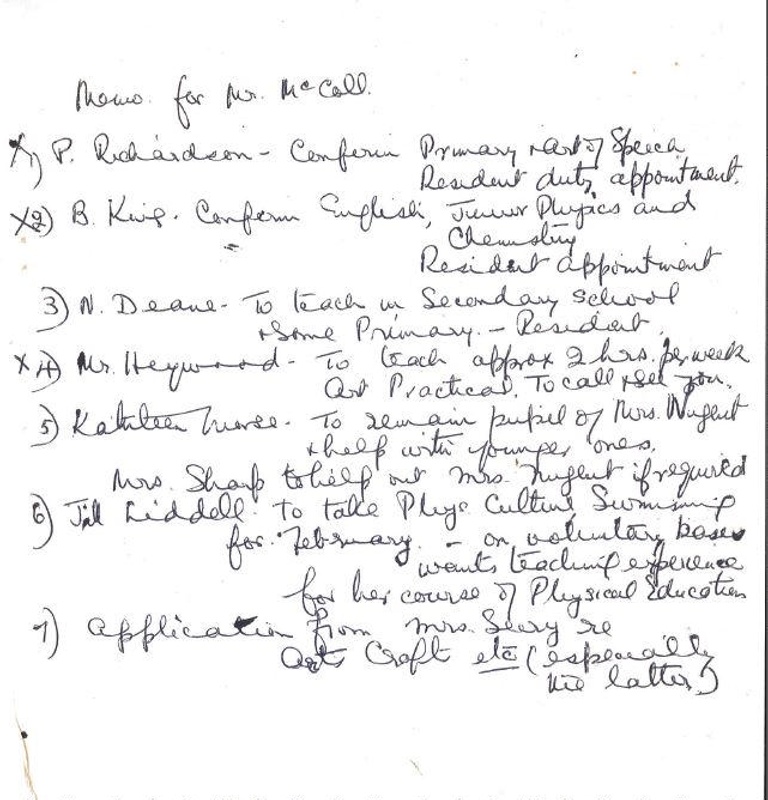 Memo for Mr. McCall.
X1) P. Richardson - Confirm Primary & Art of Speech
Resident duty appointment.
X2) B. King. Confirm English, Junior Physics and
Chemistry
Resident appointment
3) N. Deane - To teach in Secondary School
& some Primary. - Resident.
X4) Mr. Heywood - To teach approx 2 hrs. per week
Art Practical. To call & see you.
5) Kathleen - To remain pupil of Mrs. Nugent
& help with younger ones.
Mrs. Sharp to help out Mrs. Nugent if required
6) Jill Liddell. To take Phys. Culture Swimming
for February. - on voluntary basis
wants teaching experience
for her course of Physical Education
7) Application from Mrs. re
Art, Craft etc (especially
the latter)